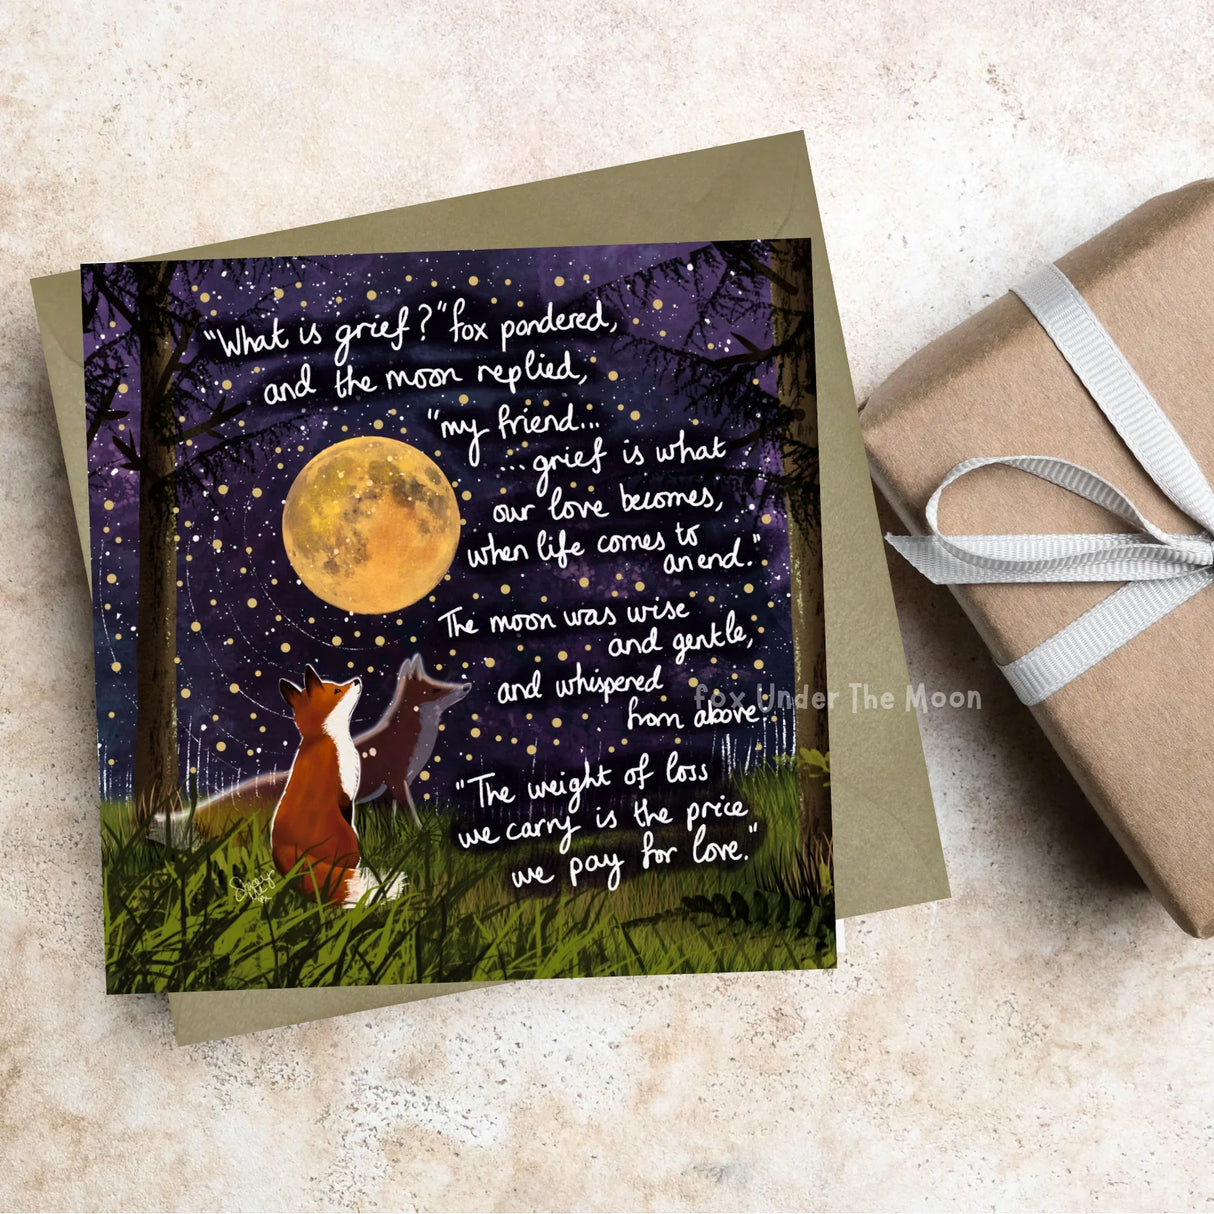 "What is grief?" fox pondered,
and the moon replied,
"my friend...
...grief is what
our love becomes,
when life comes to
an end."
The moon was wise
and gentle,
and whispered
from above
"The weight of loss
we carry is the price
we pay for love."
Fox Under The Moon